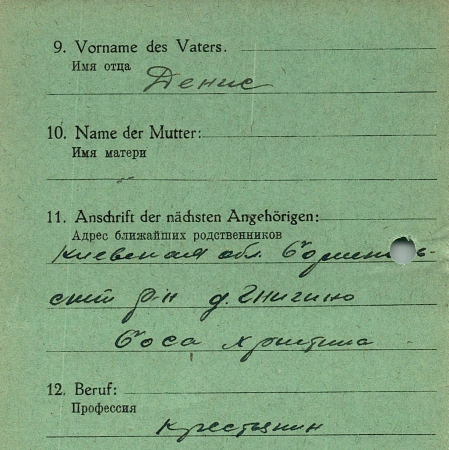 9. Vorname des Vaters.
Имя отца
Денис
10. Name der Mutter:
Имя матери
11. Anschrift der nächsten Angehörigen:
Адрес ближайших родственников
Киевская обл.
ский р-н д.
Боса Христина
12. Beruf:
Профессия
крестьянин